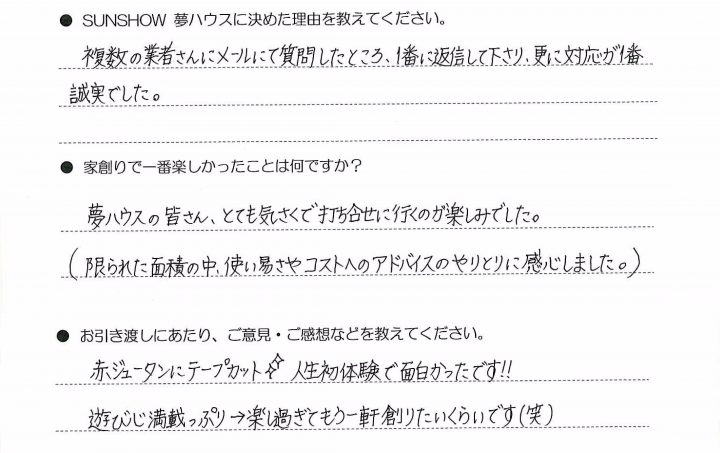 ● SUNSHOW 夢ハウスに決めた理由を教えてください。
複数の業者さんにメールにて質問したところ、1番に返信して下さり、更に対応が1番
誠実でした。
● 家創りで一番楽しかったことは何ですか？
夢ハウスの皆さん、とても気さくで打ち合せに行くのが楽しみでした。
(限られた面積の中、使い易さやコストへのアドバイスのやりとりに感心しました。)
● お引き渡しにあたり、ご意見・ご感想などを教えてください。
赤ジュータンにテープカット✧ 人生初体験で面白かったです!!
遊び心満載っぷり→楽し過ぎてもう一軒創りたいくらいです(笑)